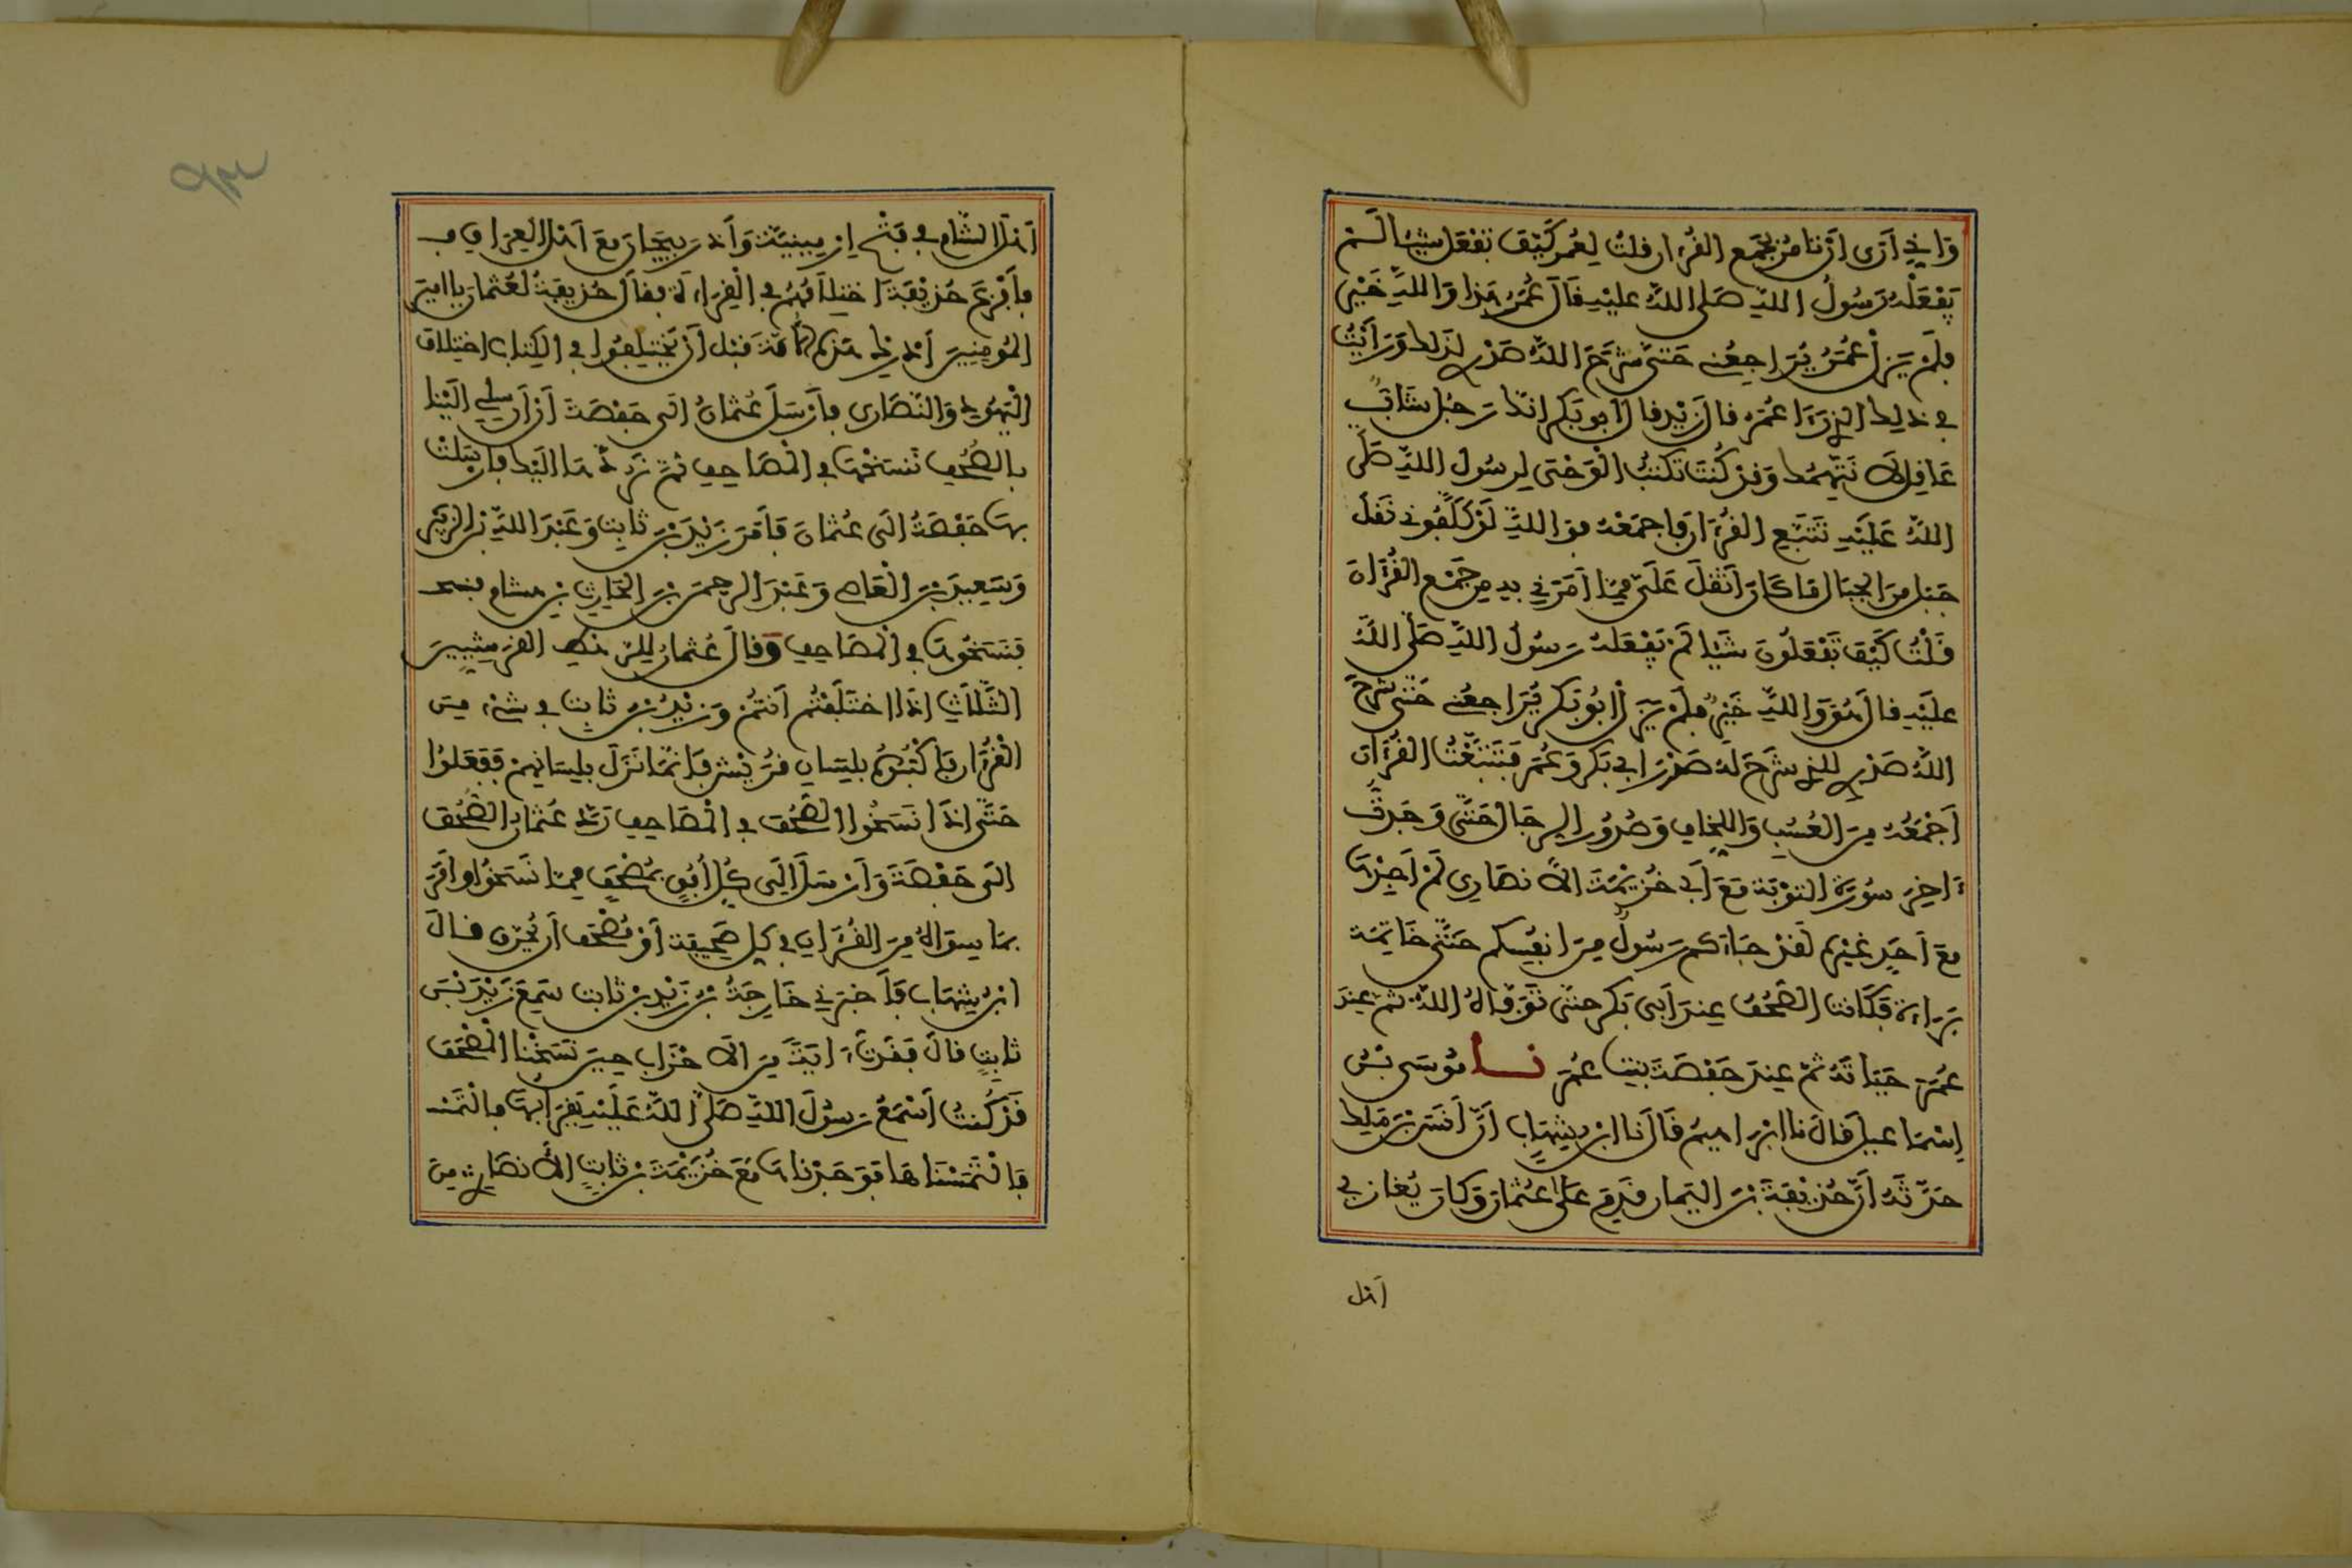 وَإِنِّي أَرَى أَنْ تَامُرَ بِجَمْعِ الْقُرْءَانِ قُلْتُ لِعُمَرَ كَيْفَ تَفْعَلُ شَيْئًا لَمْ
يَفْعَلْهُ رَسُولُ اللَّهِ صَلَّى اللَّهُ عَلَيْهِ قَالَ عُمَرُ هَذَا وَاللَّهِ خَيْرٌ
فَلَمْ يَزَلْ عُمَرُ يُرَاجِعُنِي حَتَّى شَرَحَ اللَّهُ صَدْرِي لِذَلِكَ وَرَأَيْتُ
فِي ذَلِكَ الَّذِي رَءَا عُمَرُ قَالَ زَيْدٌ قَالَ أَبُو بَكْرٍ إِنَّكَ رَجُلٌ شَابٌّ
عَاقِلٌ لَا نَتَّهِمُكَ وَقَدْ كُنْتَ تَكْتُبُ الْوَحْيَ لِرَسُولِ اللَّهِ صَلَّى
اللَّهُ عَلَيْهِ تَتَبَّعِ الْقُرْءَانَ فَاجْمَعْهُ فَوَاللَّهِ لَوْ كَلَّفُونِي نَقْلَ
جَبَلٍ مِنَ الْجِبَالِ مَا كَانَ أَثْقَلَ عَلَيَّ مِمَّا أَمَرَنِي بِهِ مِنْ جَمْعِ الْقُرْءَانِ
قُلْتُ كَيْفَ تَفْعَلُونَ شَيْئًا لَمْ يَفْعَلْهُ رَسُولُ اللَّهِ صَلَّى اللَّهُ
عَلَيْهِ قَالَ هُوَ وَاللَّهِ خَيْرٌ فَلَمْ يَزَلْ أَبُو بَكْرٍ يُرَاجِعُنِي حَتَّى شَرَحَ
اللَّهُ صَدْرِي لِلَّذِي شَرَحَ لَهُ صَدْرَ أَبِي بَكْرٍ وَعُمَرَ فَتَتَبَّعْتُ الْقُرْءَانَ
أَجْمَعُهُ مِنَ الْعُسُبِ وَاللِّخَافِ وَصُدُورِ الرِّجَالِ حَتَّى وَجَدْتُ
ءَاخِرَ سُورَةِ التَّوْبَةِ مَعَ أَبِي خُزَيْمَةَ الْأَنْصَارِي لَمْ أَجِدْهَا
مَعَ أَحَدٍ غَيْرِهِ لَقَدْ جَاءَكُمْ رَسُولٌ مِنْ أَنْفُسِكُمْ حَتَّى خَاتِمَةِ
بَرَاءَةٌ فَكَانَتِ الصُّحُفُ عِنْدَ أَبِي بَكْرٍ حَتَّى تَوَفَّاهُ اللَّهُ ثُمَّ عِنْدَ
عُمَرَ حَيَاتَهُ ثُمَّ عِنْدَ حَفْصَةَ بِنْتِ عُمَرَ نَـا مُوسَى بْنُ
إِسْمَاعِيلَ قَالَ نَا إِبْرَاهِيمُ قَالَ نَا ابْنُ شِهَابٍ أَنَّ أَنَسَ بْنَ مَلِكٍ
حَدَّثَهُ أَنَّ حُذَيْفَةَ بْنَ الْيَمَانِ قَدِمَ عَلَى عُثْمَانَ وَكَانَ يُغَازِي
أَهْلَ
أَهْلَ الشَّامِ فِي فَتْحِ إِرْمِينِيَّةَ وَأَذْرَبِيجَانَ مَعَ أَهْلِ الْعِرَاقِ فـ
فَأَفْزَعَ حُذَيْفَةَ اخْتِلَافُهُمْ فِي الْقِرَاءَةِ فَقَالَ حُذَيْفَةُ لِعُثْمَانَ يَا أَمِيرَ
الْمُومِنِينَ أَدْرِكْ هَذِهِ الْأُمَّةَ قَبْلَ أَنْ يَخْتَلِفُوا فِي الْكِتَابِ اخْتِلَافَ
الْيَهُودِ وَالنَّصَارَى فَأَرْسَلَ عُثْمَانُ إِلَى حَفْصَةَ أَنْ أَرْسِلِي إِلَيْنَا
بِالصُّحُفِ نَنْسَخْهَا فِي الْمَصَاحِفِ ثُمَّ نَرُدُّهَا إِلَيْكِ فَأَرْسَلَتْ
بِهَا حَفْصَةُ إِلَى عُثْمَانَ فَأَمَرَ زَيْدَ بْنَ ثَابِتٍ وَعَبْدَ اللَّهِ بْنَ الزُّبَيْرِ
وَسَعِيدَ بْنَ الْعَاصِ وَعَبْدَ الرَّحْمَنِ بْنَ الْحَارِثِ بْنِ هِشَامٍ
فَنَسَخُوهَا فِي الْمَصَاحِفِ وَقَالَ عُثْمَانُ لِلرَّهْطِ الْقُرَشِيِّينَ
الثَّلَاثَةِ إِذَا اخْتَلَفْتُمْ أَنْتُمْ وَزَيْدُ بْنُ ثَابِتٍ فِي شَيْءٍ مِنَ
الْقُرْءَانِ فَاكْتُبُوهُ بِلِسَانِ قُرَيْشٍ فَإِنَّمَا نَزَلَ بِلِسَانِهِمْ فَفَعَلُوا
حَتَّى إِذَا نَسَخُوا الصُّحُفَ فِي الْمَصَاحِفِ رَدَّ عُثْمَانُ الصُّحُفَ
إِلَى حَفْصَةَ وَأَرْسَلَ إِلَى كُلِّ أُفُقٍ بِمُصْحَفٍ مِمَّا نَسَخُوا وَأَمَرَ
بِمَا سِوَاهُ مِنَ الْقُرْءَانِ فِي كُلِّ صَحِيفَةٍ أَوْ مُصْحَفٍ أَنْ يُحْرَقَ قَالَ
ابْنُ شِهَابٍ فَأَخْبَرَنِي خَارِجَةُ بْنُ زَيْدِ بْنِ ثَابِتٍ سَمِعَ زَيْدَ بْنَ
ثَابِتٍ قَالَ فَقَدْتُ ءَايَةً مِنَ الْأَحْزَابِ حِينَ نَسَخْنَا الْمُصْحَفَ
قَدْ كُنْتُ أَسْمَعُ رَسُولَ اللَّهِ صَلَّى اللَّهُ عَلَيْهِ يَقْرَأُ بِهَا فَالْتَمَـ
فَالْتَمَسْنَاهَا فَوَجَدْنَاهَا مَعَ خُزَيْمَةَ بْنِ ثَابِتٍ الْأَنْصَارِيِّ مِنَ